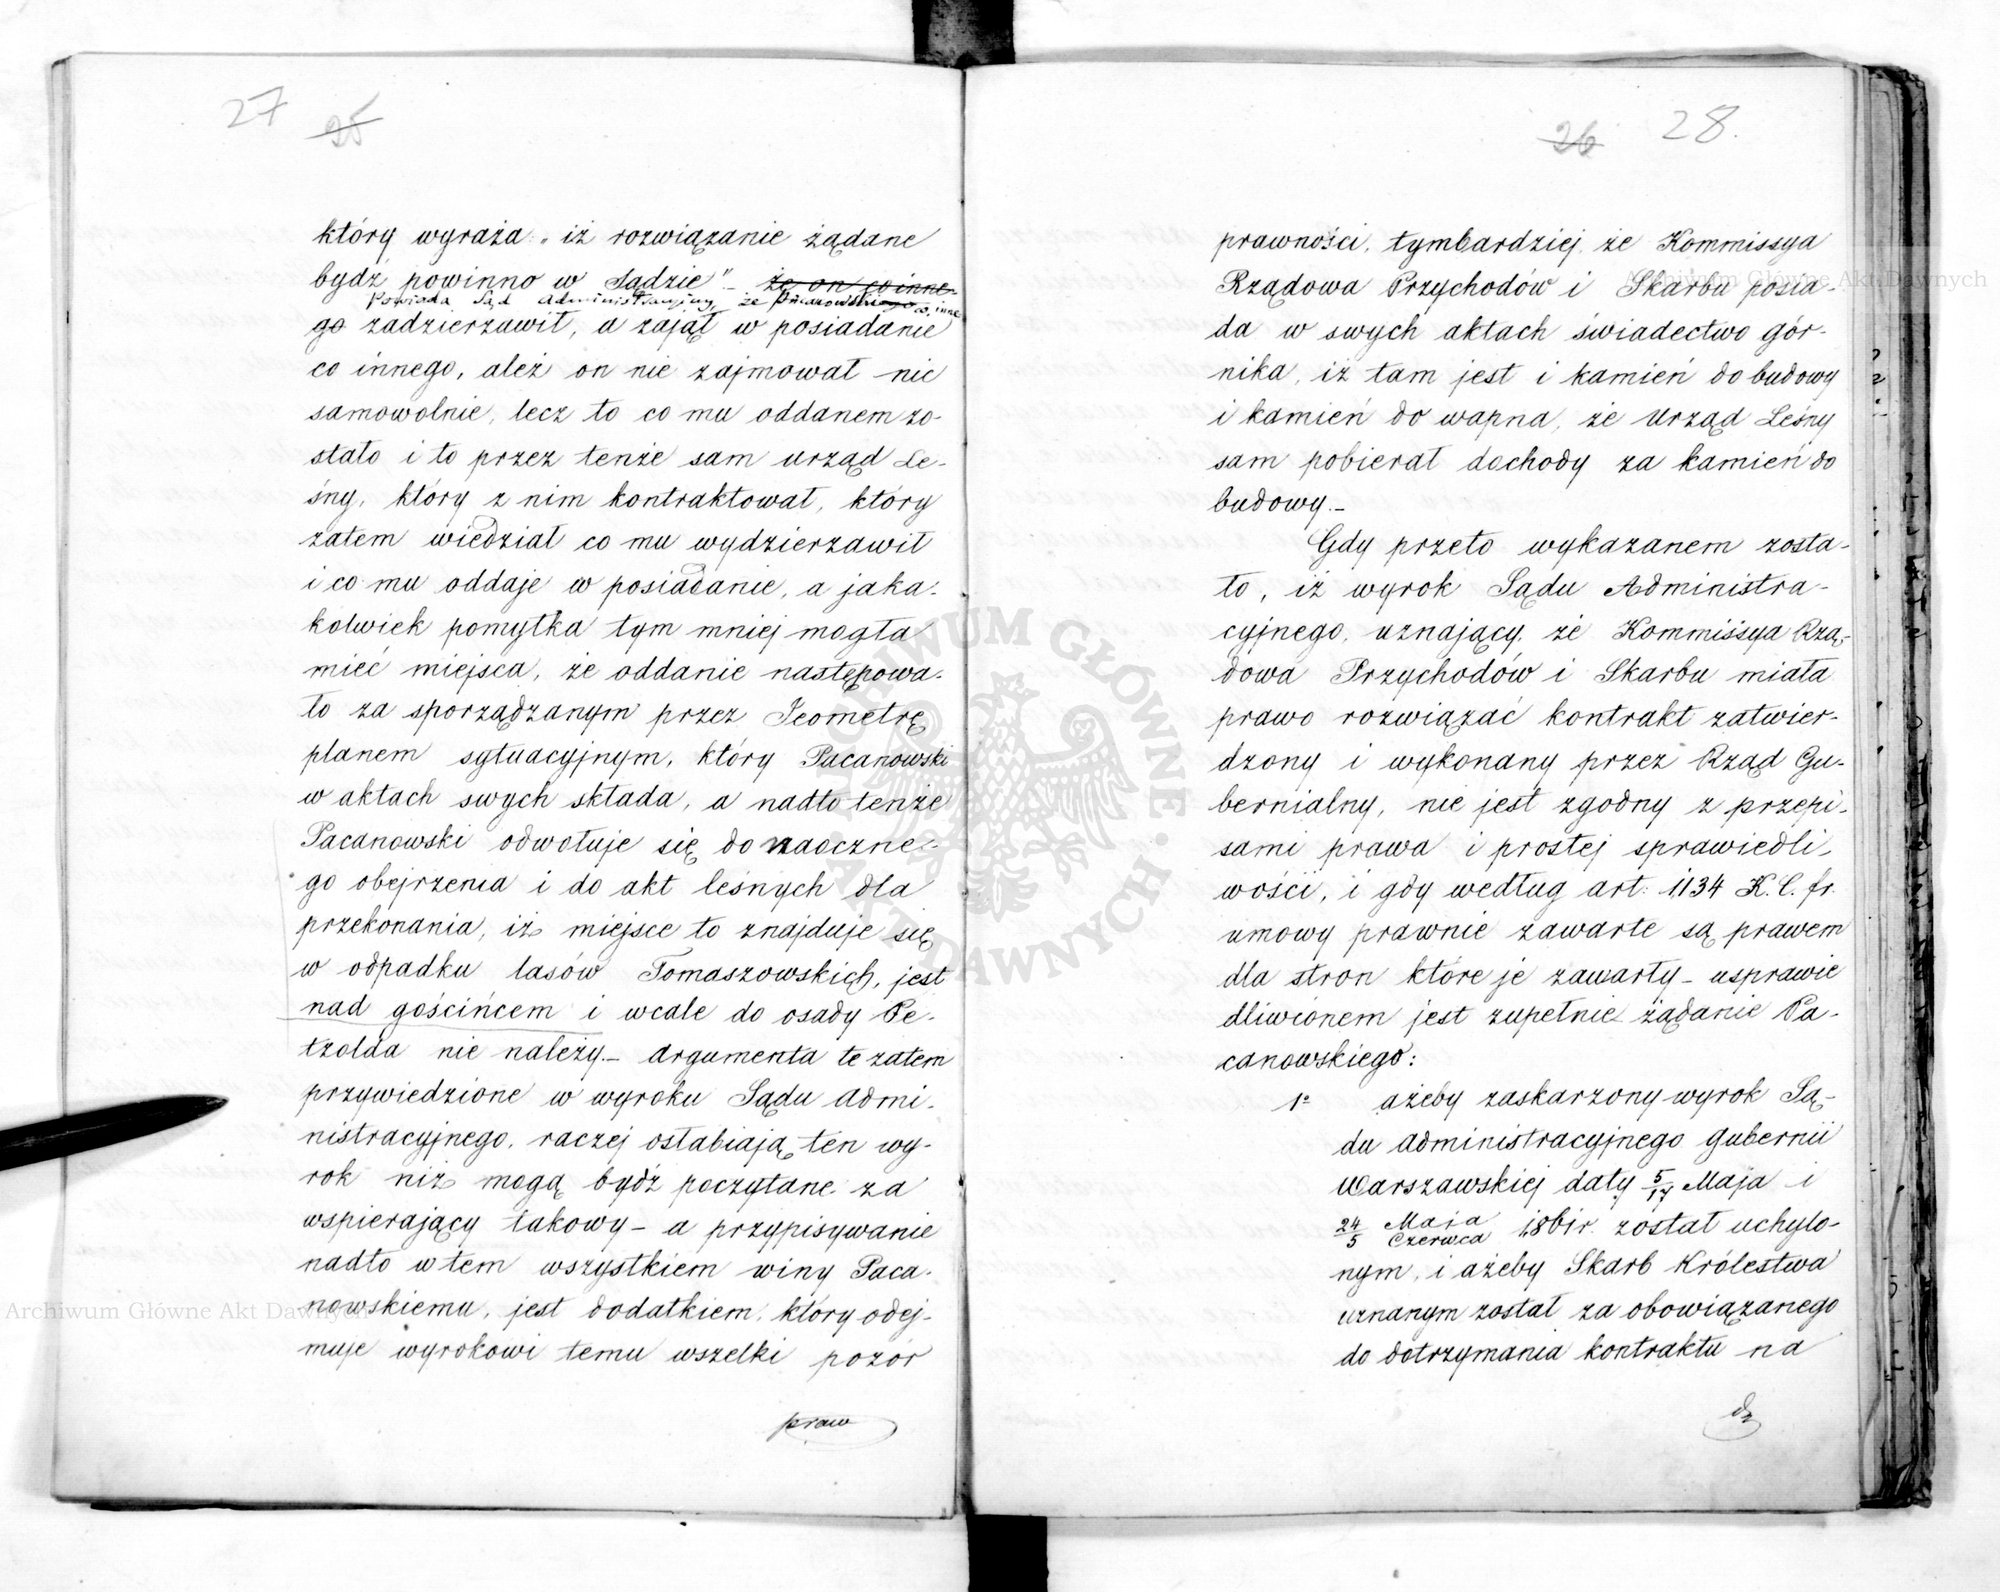 27 25
który wyraża: „iż rozwiązanie żądane
bydź powinno w Sądzie" – że on co inne-
Powiada Sąd Administracyjny, że Pacanowskiego co inne
go zadzierżawił, a zajął w posiadanie
co innego, aleź on nie zajmował nic
samowolnie, lecz to co mu oddanem zo-
stało i to przez tenże sam urząd Le-
śny, który z nim kontraktował, który
zatem wiedział co mu wydzierżawił
i co mu oddaje w posiadanie, a jaka-
kolwiek pomyłka tym mniej mogła
mieć miejsca, że oddanie następowa-
ło za sporządzanym przez Jeometrę
planem sytuacyjnym, który Pacanowski
w aktach swych składa, a nadto tenże
Pacanowski odwołuje się do naoczne-
go obejrzenia i do akt leśnych dla
przekonania, iż miejsce to znajduje się
w odpadku lasów Tomaszowskich, jest
nad gościńcem i wcale do osady Pe-
tzolda nie należy. – Argumenta te zatem
przywiedzione w wyroku Sądu Admi-
nistracyjnego, raczej osłabiają ten wy-
rok niż mogą bydź poczytane za
wspierający takowy – a przypisywanie
nadto w tem wszystkiem winy Paca-
nowskiemu, jest dodatkiem, który odej-
muje wyrokowi temu wszelki pozór
praw
26 28.
prawności, tymbardziej że Kommissya
Rządowa Przychodów i Skarbu posia-
da w swych aktach świadectwo gór-
nika, iż tam jest i kamień do budowy
i kamień do wapna, że Urząd Leśny
sam pobierał dochody za kamień do
budowy. –
Gdy przeto wykazanem zosta-
ło, iż wyrok Sądu Administra-
cyjnego, uznający, że Kommissya Rzą-
dowa Przychodów i Skarbu miała
prawo rozwiązać kontrakt zatwier-
dzony i wykonany przez Rząd Gu-
bernialny, nie jest zgodny z przepi-
sami prawa i prostej sprawiedli-
wości, i gdy według art: 1134 K. C. fr.
umowy prawnie zawarte są prawem
dla stron które je zawarły – usprawie
dliwionem jest zupełnie żądanie Pa-
canowskiego:
1º ażeby zaskarżony wyrok Są-
du Administracyjnego Gubernii
Warszawskiej daty 5/17 Maja i
24/5 Maja/Czerwca 1861r. został uchylo-
nym, i ażeby Skarb Królestwa
uznanym został za obowiązanego
do dotrzymania kontraktu na
dz
Archiwum Główne Akt Dawnych
Archiwum Główne Akt Dawnych
ARCHIWUM GŁÓWNE AKT DAWNYCH